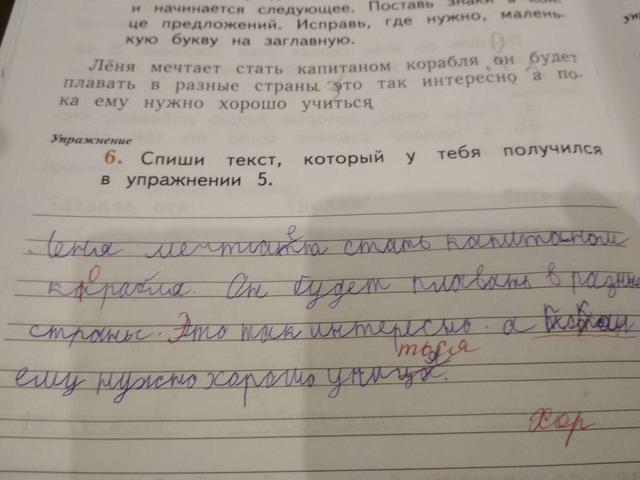 и начинается следующее. Поставь знаки в кон-
це предложений. Исправь, где нужно, малень-
кую букву на заглавную.
Лёня мечтает стать капитаном корабля он будет
плавать в разные страны это так интересно а по-
ка ему нужно хорошо учиться
Упражнение
6. Спиши текст, который у тебя получился
в упражнении 5.
Лёня мечтает стать капитаном
корабля. Он будет плавать в разные
страны. Это так интересно. а
ться
ему нужно хорошо учица.
Хор